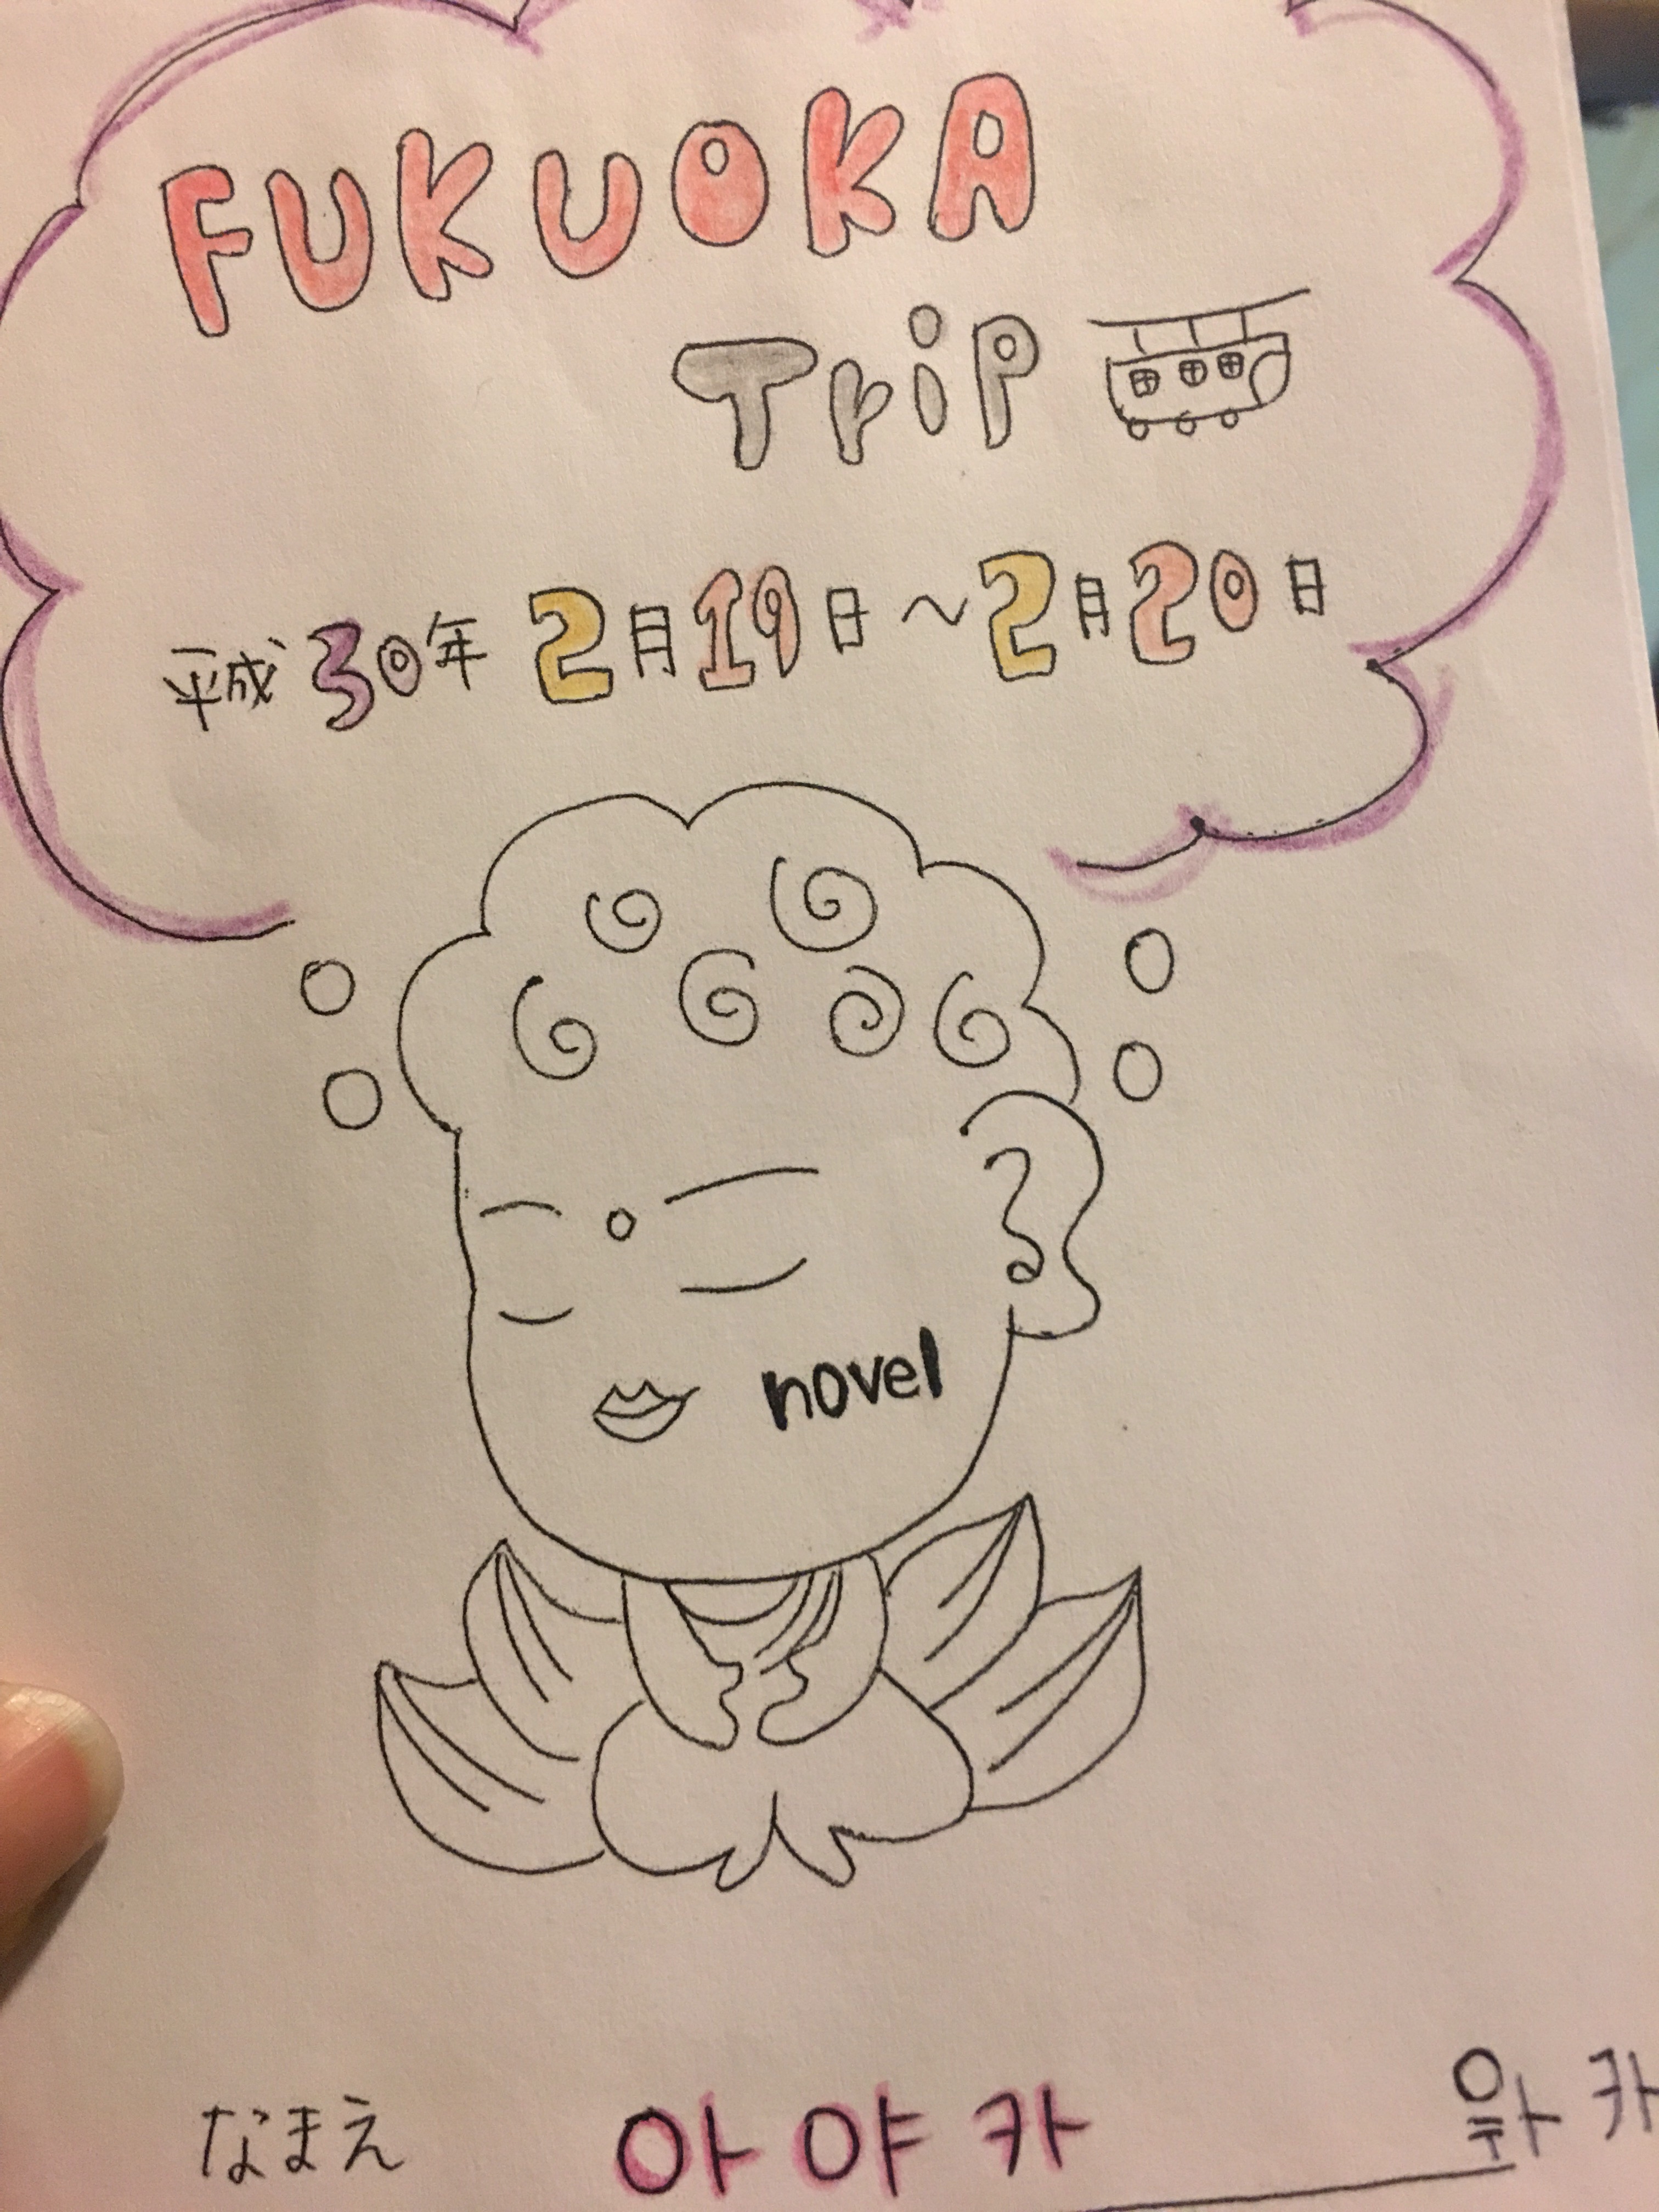 FUKUOKA
Trip
平成30年 2月19日～2月20日
novel
なまえ 아야카